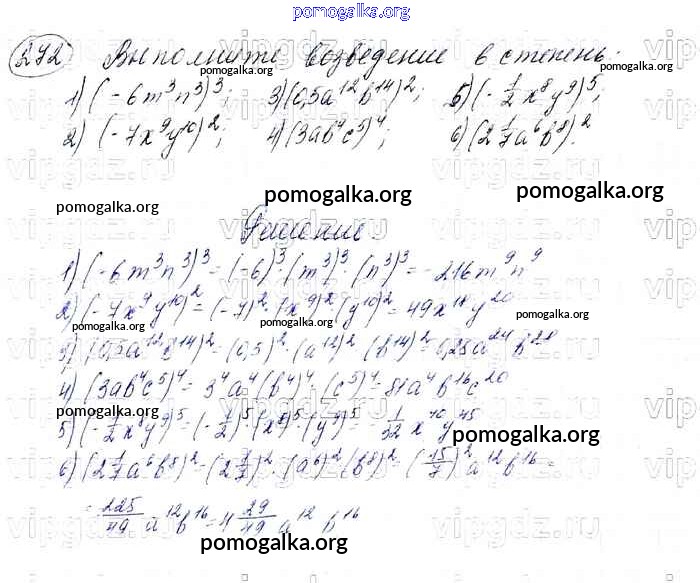 pomogalka.org
292 Выполните возведение в степень.
1) (-6m³n³)³; 3) (0,5a¹²b¹⁴)²; 5) (-1/2 x⁸y⁹)⁵;
2) (-7x⁹y¹⁰)²; 4) (3ab⁴c⁵)⁴; 6) (2 1/7 a⁶b⁸)².
pomogalka.org pomogalka.org pomogalka.org
pomogalka.org pomogalka.org pomogalka.org
pomogalka.org pomogalka.org pomogalka.org
Решение.
1) (-6m³n³)³ = (-6)³·(m³)³·(n³)³ = -216m⁹n⁹
2) (-7x⁹y¹⁰)² = (-7)²·(x⁹)²·(y¹⁰)² = 49x¹⁸y²⁰
pomogalka.org pomogalka.org pomogalka.org
3) (0,5a¹²b¹⁴)² = (0,5)²·(a¹²)²·(b¹⁴)² = 0,25a²⁴b²⁸
4) (3ab⁴c⁵)⁴ = 3⁴a⁴(b⁴)⁴·(c⁵)⁴ = 81a⁴b¹⁶c²⁰
pomogalka.org
5) (-1/2 x⁸y⁹)⁵ = (-1/2)⁵·(x⁸)⁵·(y⁹)⁵ = -1/32 x⁴⁰y⁴⁵
pomogalka.org
6) (2 1/7 a⁶b⁸)² = (2 1/7)²·(a⁶)²(b⁸)² = (15/7)² a¹²b¹⁶ =
= 225/49 a¹²b¹⁶ = 4 29/49 a¹²b¹⁶
pomogalka.org
vipgdz.ru